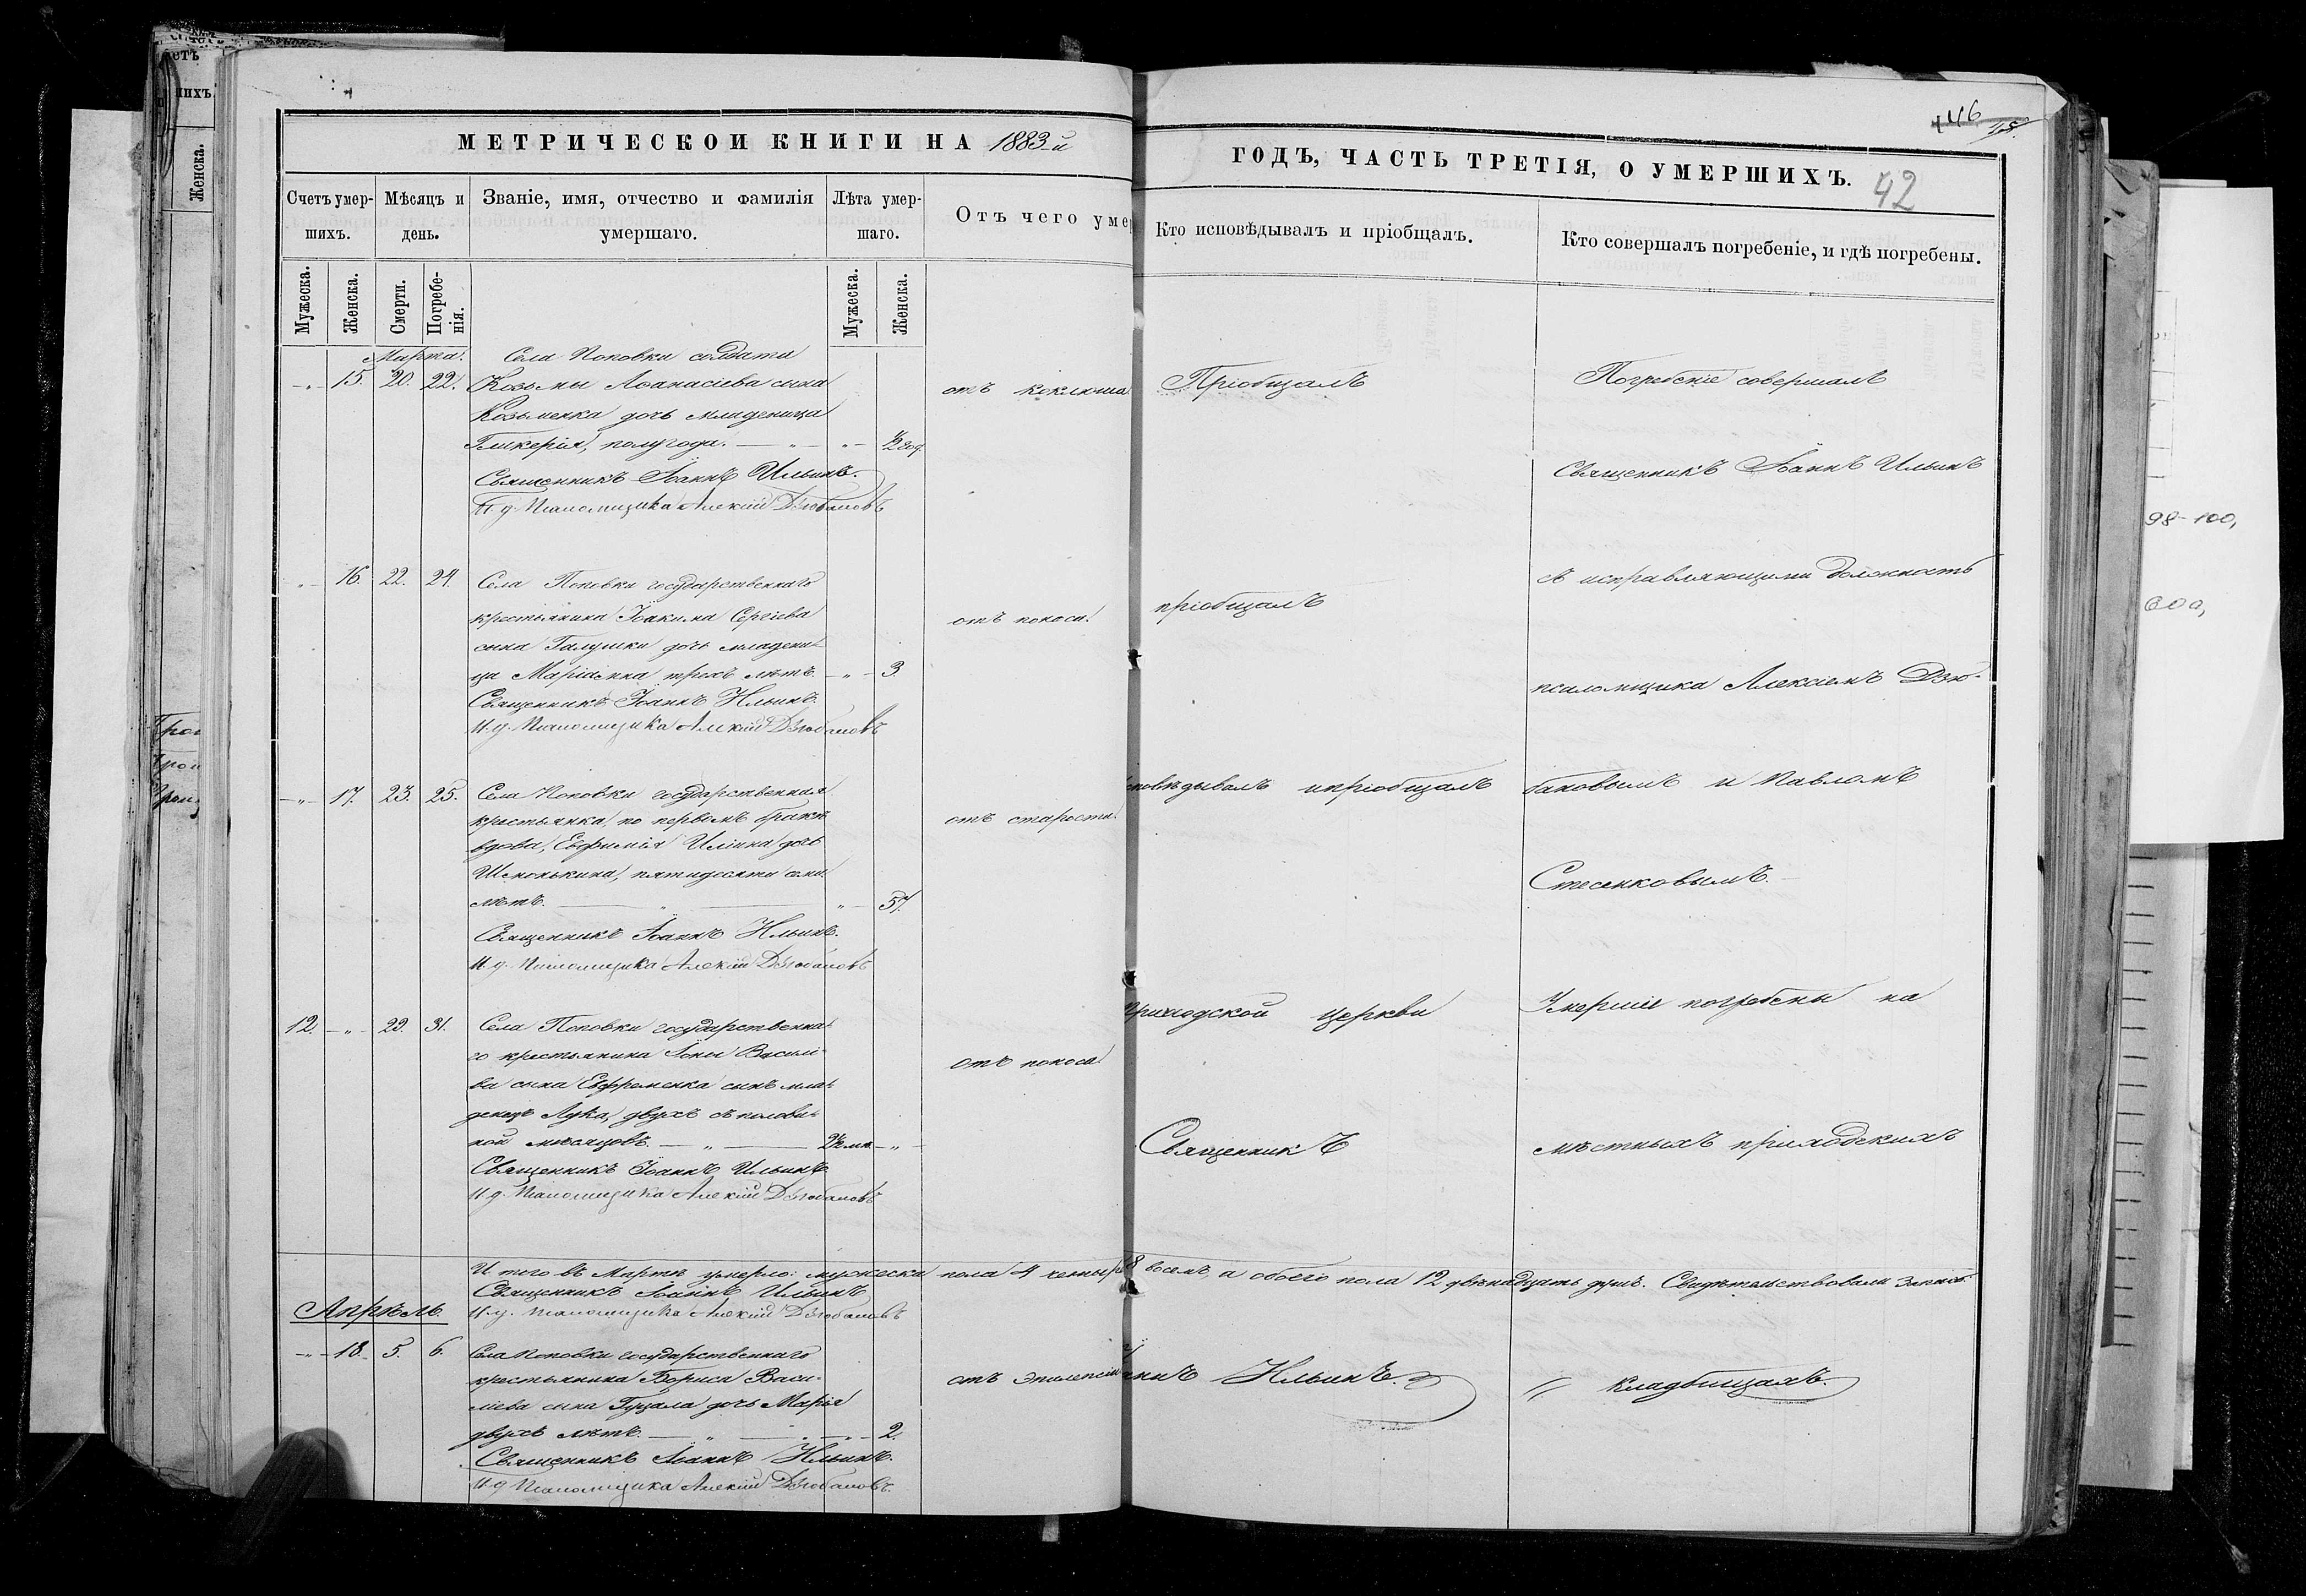 МЕТРИЧЕСКОЙ КНИГИ НА 1883-й
ГОДЪ, ЧАСТЬ ТРЕТІЯ, О УМЕРШИХЪ.
42
Счетъ умершихъ.
Мѣсяцъ и день.
Званіе, имя, отчество и фамилія умершаго.
Лѣта умершаго.
Отъ чего умер
Кто исповѣдывалъ и пріобщалъ.
Кто совершалъ погребеніе, и гдѣ погребены.
Мужеска.
Женска.
Смерти.
Погребенія.
Мужеска.
Женска.
Марта.
15. 20. 22.
Села Поповки солдата
Козьмы Аѳанасіева сына
Козьменка дочь младеница
Гликерія, полугода. ½ год.
Священникъ Іоаннъ Ильинъ.
И. д. Псаломщика Алексій Дзюбановъ
отъ коклюша
16. 22. 24.
Села Поповки государственнаго
крестьянина Іоакима Сергіева
сына Галушки дочь младени-
ца Маріамна трехъ лѣтъ. 3
Священникъ Іоаннъ Ильинъ.
И. д. Псаломщика Алексій Дзюбановъ
отъ поноса.
17. 23. 25.
Села Поповки государственная
крестьянка, по первомъ бракѣ
вдова, Евфимія Иліина дочь
пятидесяти семи
лѣтъ. 57.
Священникъ Іоаннъ Ильинъ.
И. д. Псаломщика Алексій Дзюбановъ
отъ старости.
12. 29. 31.
Села Поповки государственна-
го крестьянина Іоны Василі-
ва сына Евфременка сынъ мла-
денецъ Лука, двухъ съ полови-
ной мѣсяцовъ. 2½ мѣ.
Священникъ Іоаннъ Ильинъ
И. д. Псаломщика Алексій Дзюбановъ
отъ поноса
Итого въ Мартѣ умерло: мужеска пола 4 четыре 8 восемь, а обоего пола 12 двѣнадцать душъ. Свидѣтельствовали
Священникъ Іоаннъ Ильинъ
И. д. Псаломщика Алексій Дзюбановъ
Апрѣль.
18. 5. 6.
Села Поповки государственнаго
крестьянина Бориса Васи-
лиева сына Гуцала дочь Марія
двухъ лѣтъ. 2.
Священникъ Іоаннъ Ильинъ.
И. д. Псаломщика Алексій Дзюбановъ.
отъ эпилепсіи
Пріобщалъ
пріобщалъ
повѣдывалъ и пріобщалъ
приходской церкви
Священникъ
аннъ Ильинъ.
Погребеніе совершалъ
Священникъ Іоаннъ Ильинъ
съ исправляющими должность
псаломщика Алексіемъ Дзю-
бановымъ и Павломъ
Стесенковымъ.
Умершіе погребены на
мѣстныхъ приходскихъ
кладбищахъ.
98-100,
600,